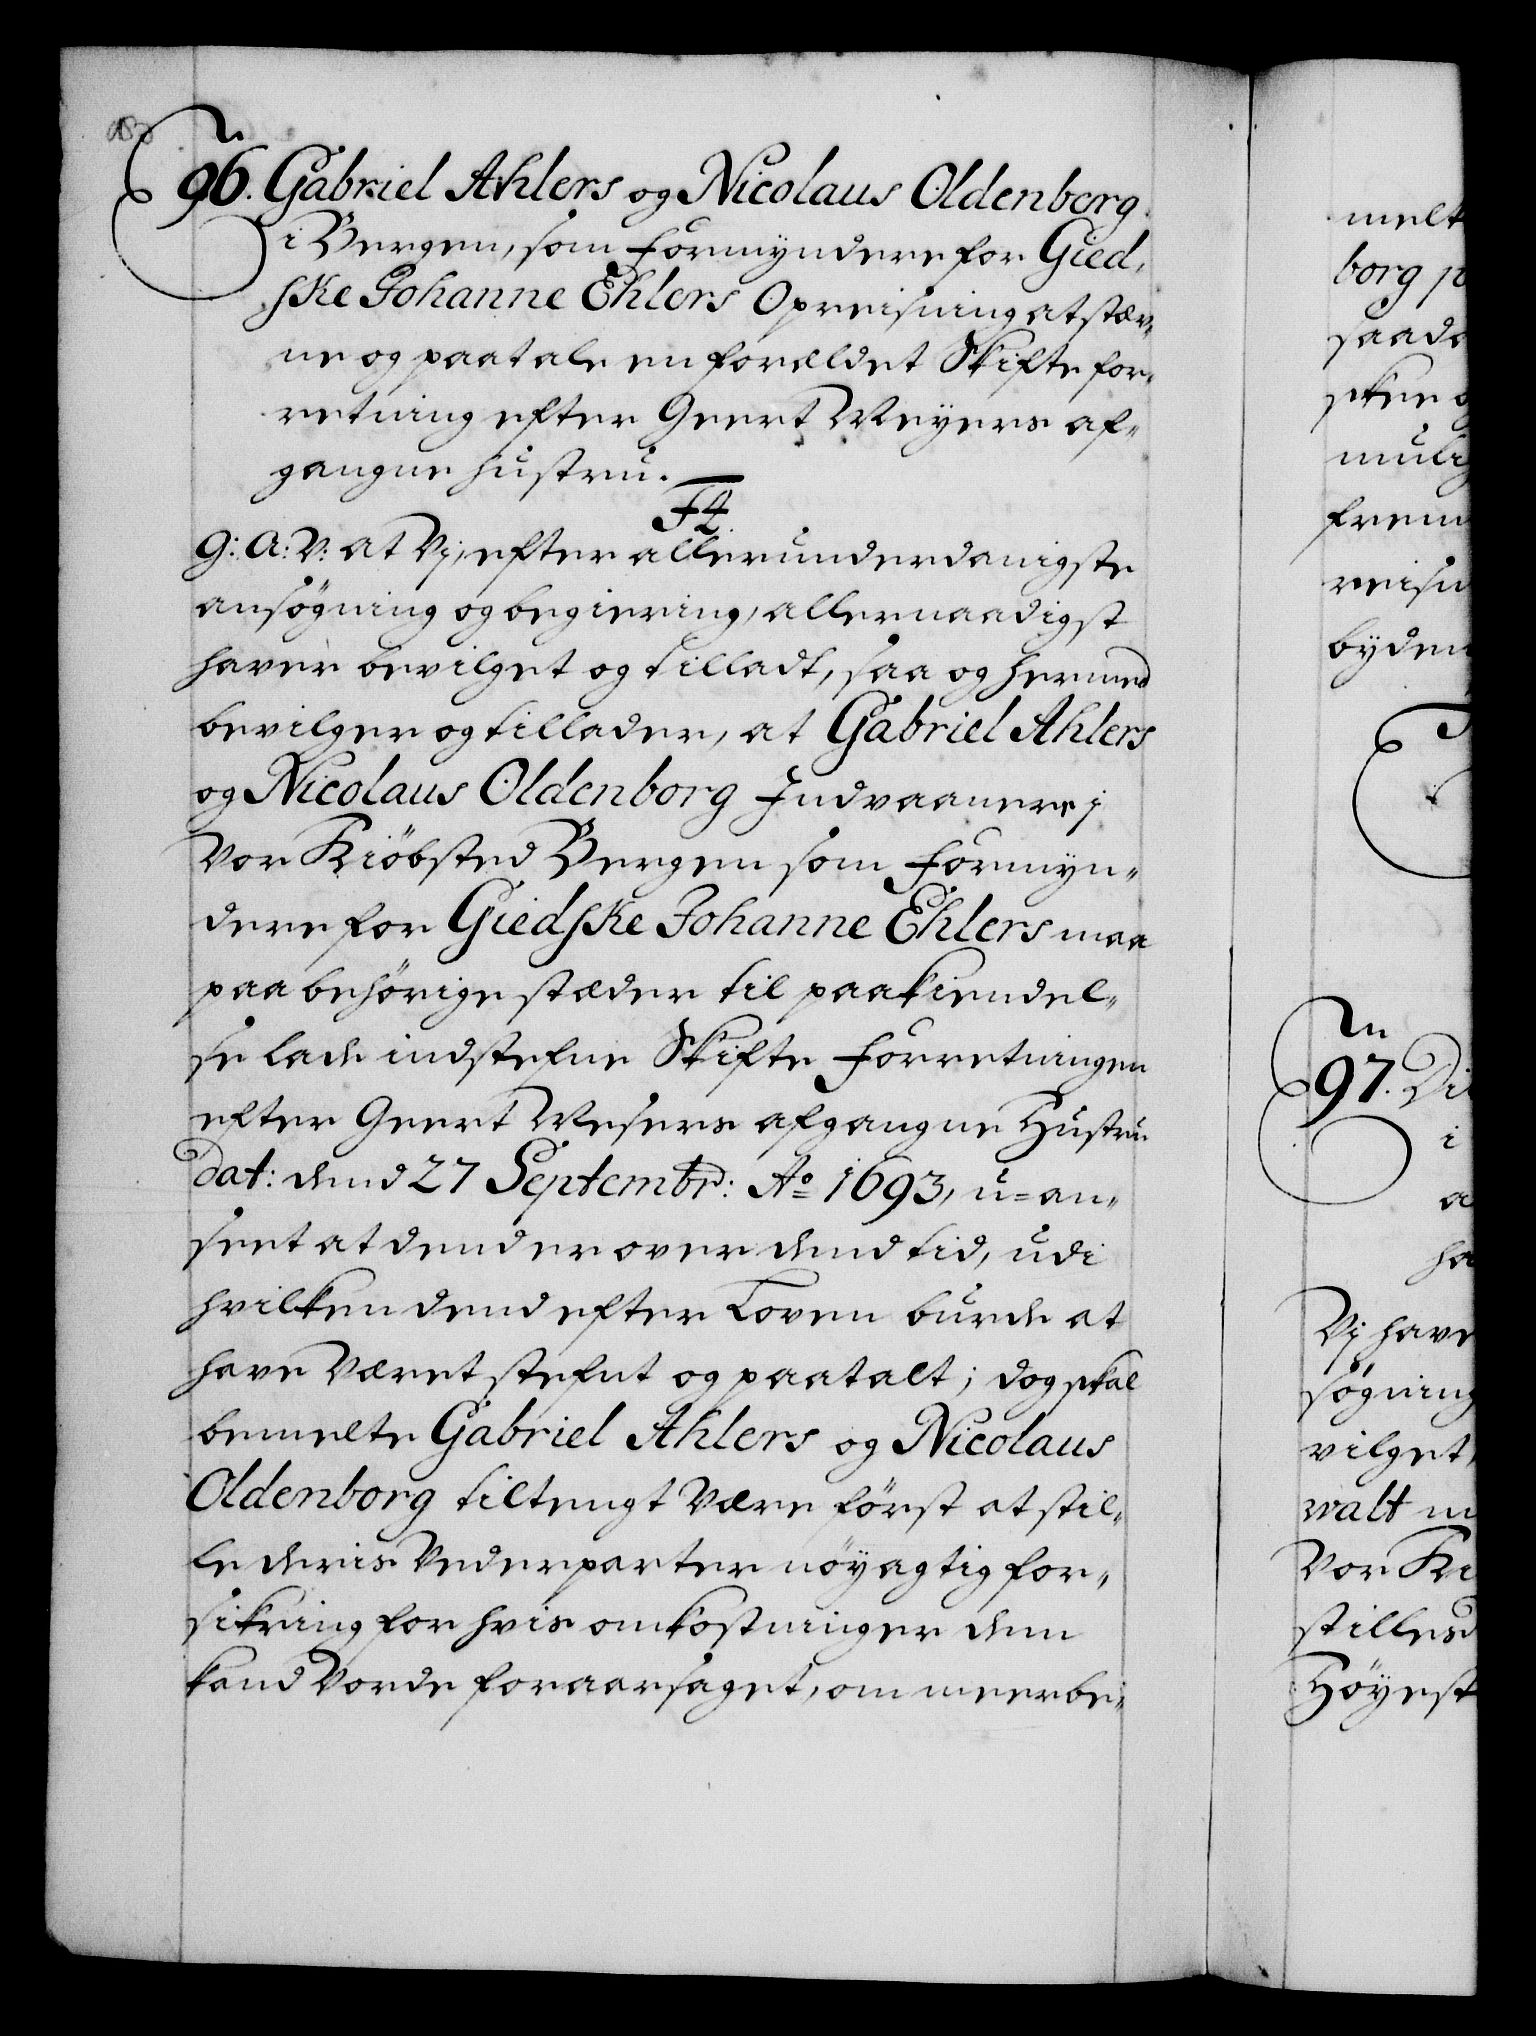 96. Gabriel Ahlers og Nicolaus Oldenborg
i Bergen, som Formyndere for Gied,
ske Johanne Ehlers Opreisning at stæv„
ne og paatale en forældet Skifte for„
retning efter Geert Meyers af„
gangne hustru.
F4.
G: A: V: at Vj, efter allerunderdanigste
ansøgning og begiering, allernaadigst
haver bevilget og tilladt, saa og hermed
bevilger og tillader, at Gabriel Ahlers
og Nicolaus Oldenborg Indvaanere i
Vor Kiöbsted Bergen som Formyn„
dere for Giedske Johanne Ehlers maa
paa behörige stæder til paakiendel„
se lade indstefne Skifte Forretningen
efter Geert Mesers afgangne Hustru
dat: dend 27 Septembr: Ao 1693, u=an„
seet at dend er over dend tid, udi
hvilken dend efter Loven burde at
have Været stefnt og paatalt; dog skal
bemelte Gabriel Ahlers og Nicolaus
Oldenborg tiltengt Være först at stil„
le deris Vederparter nöyagtig for„
sikring for hvis omkostninger dem
kand Vorde foraarsaget, om meerbe„
melt
borg
mulig
byden
97.
i
Vj have
søgning
vilget,
walt
Vor
stilles
Höyest